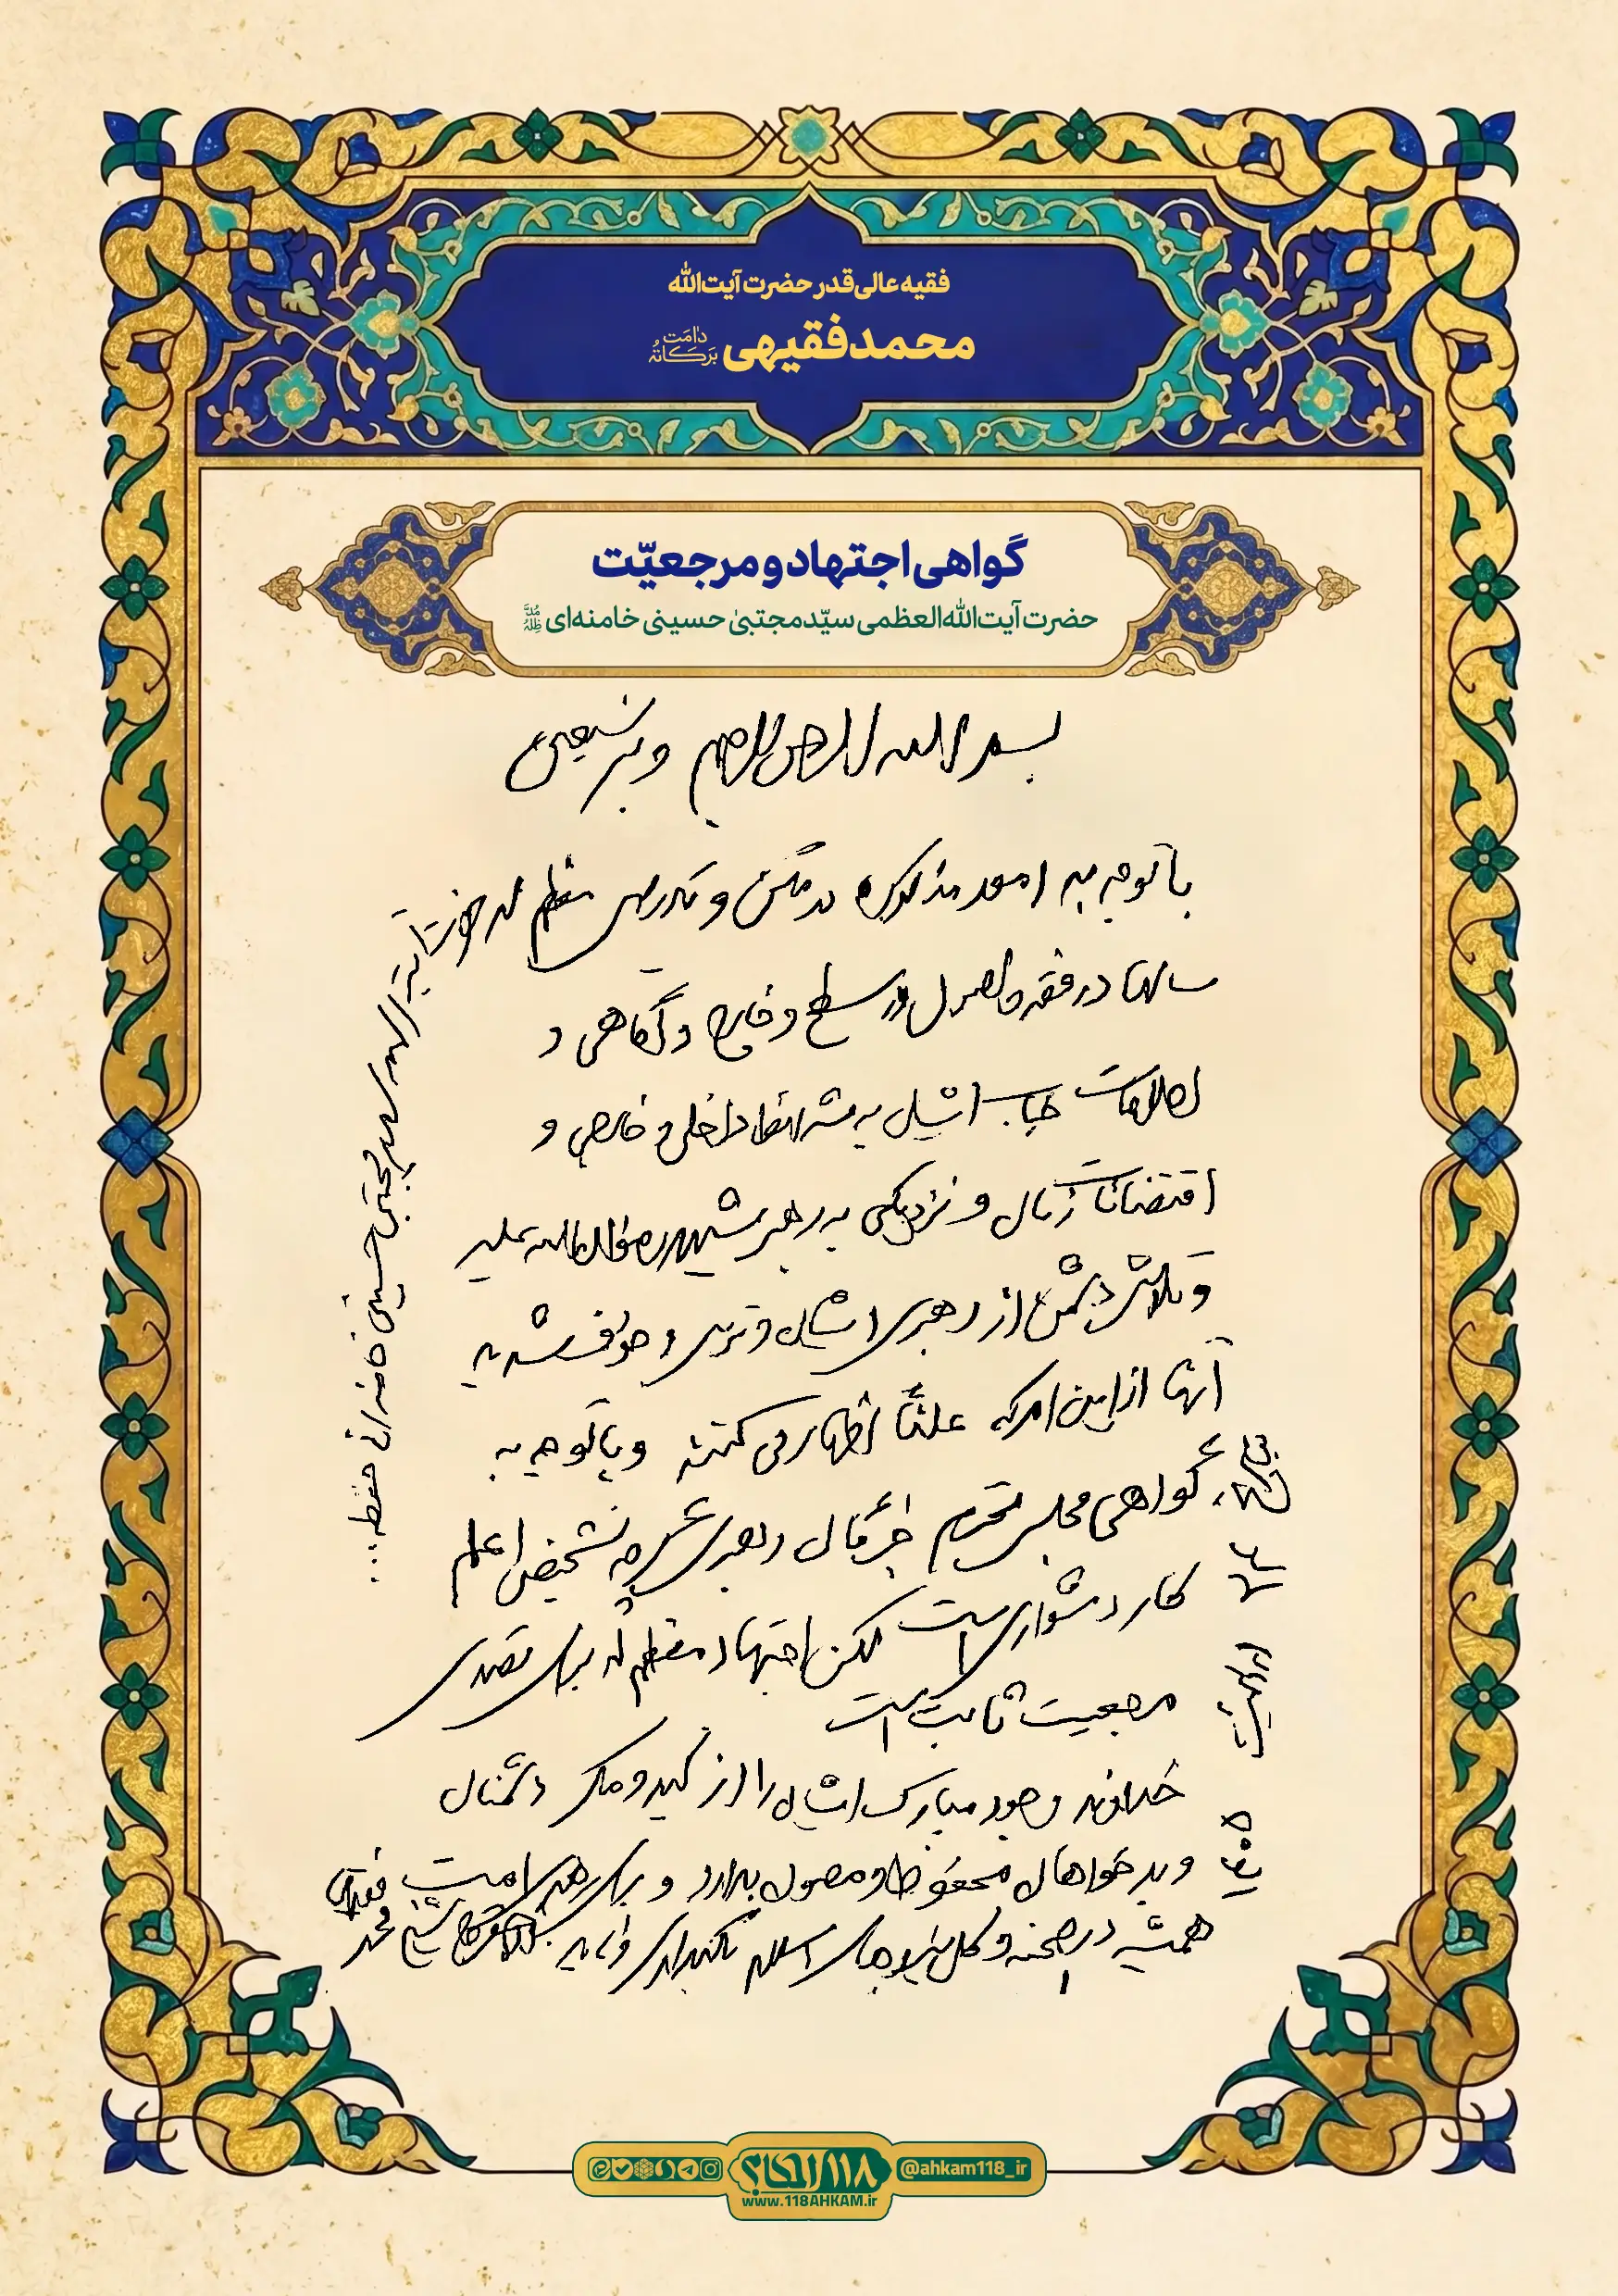 فقیه عالی‌قدر حضرت آیت‌الله
محمد فقیهی دامَت بَرَکاتُهُ
گواهی اجتهاد و مرجعیّت
حضرت آیت‌الله‌العظمی سیّد مجتبیٰ حسینی خامنه‌ای مُدَّ ظِلُّهُ
بسم الله الرحمن الرحیم و به نستعین
با توجه به امور مذکوره در متن و تدریس معظم له حضرت آیة الله سید مجتبی حسینی خامنه ای حفظه...
سالها در فقه و اصول در سطح و خارج و آگاهی و
اطلاعات جناب ایشان به مسائل داخلی و خارجی و
اقتضائات زمان و نزدیکی به رهبر شهید رضوان الله علیه
و تلاش دشمن از رهبری ایشان و ترس و خوف
آنها از این امر که علناً اظهار می کنند و با توجه به
گواهی مجلس محترم خبرگان رهبری گرچه تشخیص اعلم
کار دشواری است لکن اجتهاد معظم له برای تصدی
مرجعیت ثابت است
خداوند وجود مبارک ایشان را از کید و مکر دشمنان
و بدخواهان محفوظ و مصون بدارد و برای رهبری امت
همیشه در صحنه و کل اسلام شیخ محمد فقیهی
@ahkam118_ir
۱۱۸ احکام
www.118AHKAM.ir